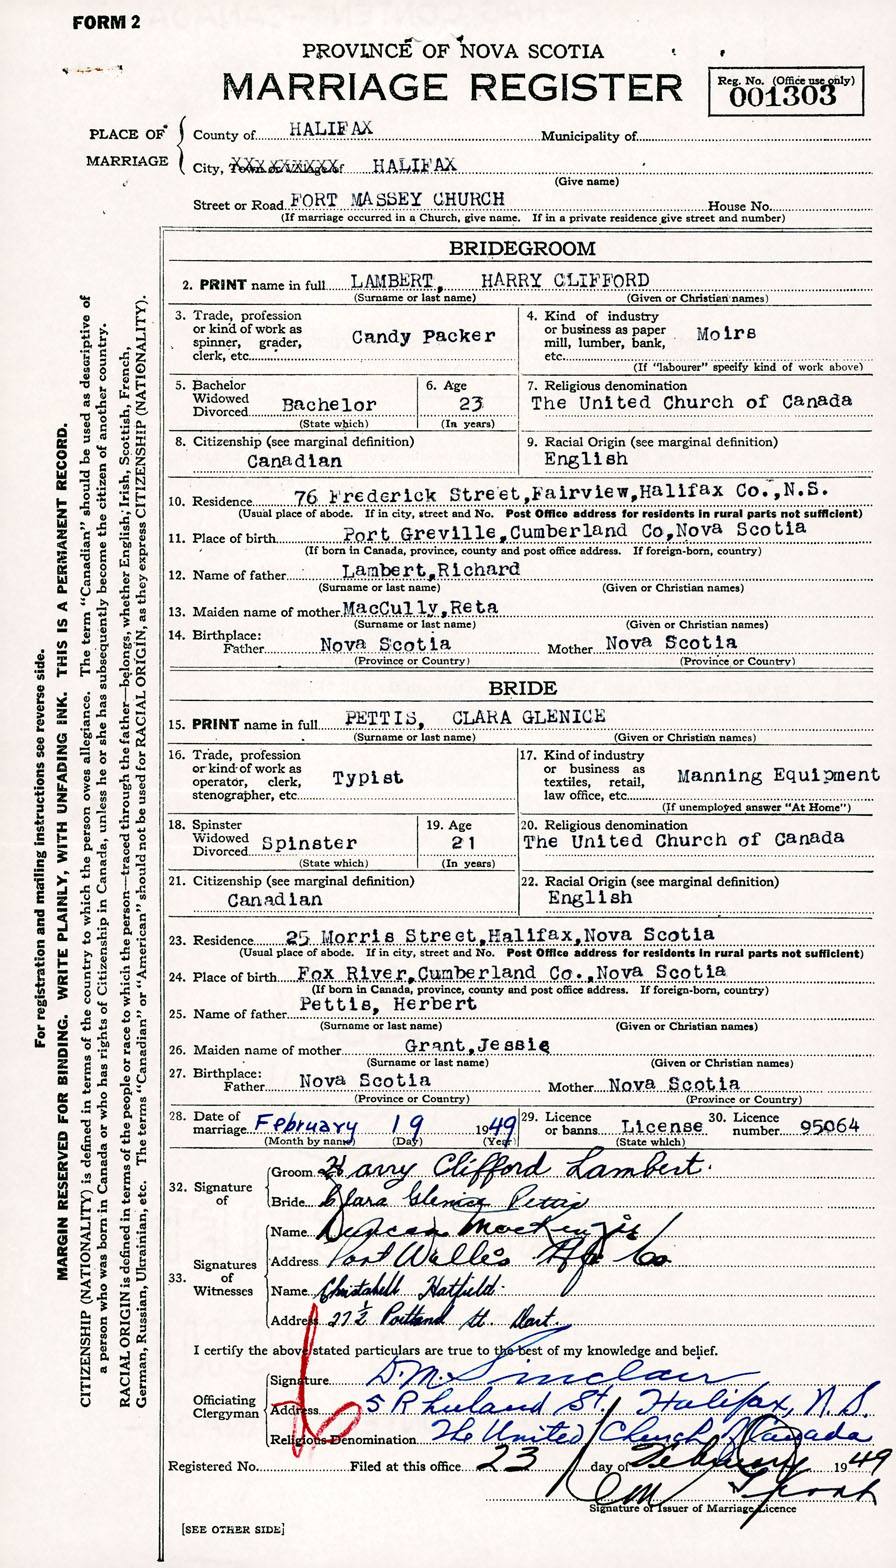 FORM 2
PROVINCE OF NOVA SCOTIA
MARRIAGE REGISTER
Reg. No. (Office use only)
001303
PLACE OF MARRIAGE
County of HALIFAX Municipality of
City, Town or Village of HALIFAX
(Give name)
Street or Road FORT MASSEY CHURCH House No.
(If marriage occurred in a Church, give name. If in a private residence give street and number)
BRIDEGROOM
2. PRINT name in full LAMBERT, HARRY CLIFFORD
(Surname or last name) (Given or Christian names)
3. Trade, profession or kind of work as spinner, grader, clerk, etc. Candy Packer
4. Kind of industry or business as paper mill, lumber, bank, etc. Moirs
(If "labourer" specify kind of work above)
5. Bachelor Widowed Divorced Bachelor
(State which)
6. Age 23
(In years)
7. Religious denomination
The United Church of Canada
8. Citizenship (see marginal definition)
Canadian
9. Racial Origin (see marginal definition)
English
10. Residence 76 Frederick Street,Fairview,Halifax Co.,N.S.
(Usual place of abode. If in city, street and No. Post Office address for residents in rural parts not sufficient)
11. Place of birth Port Greville,Cumberland Co,Nova Scotia
(If born in Canada, province, county and post office address. If foreign-born, country)
12. Name of father Lambert,Richard
(Surname or last name) (Given or Christian names)
13. Maiden name of mother MacCully,Reta
(Surname or last name) (Given or Christian names)
14. Birthplace:
Father Nova Scotia Mother Nova Scotia
(Province or Country) (Province or Country)
BRIDE
15. PRINT name in full PETTIS, CLARA GLENICE
(Surname or last name) (Given or Christian names)
16. Trade, profession or kind of work as operator, clerk, stenographer, etc. Typist
17. Kind of industry or business as textiles, retail, law office, etc. Manning Equipment
(If unemployed answer "At Home")
18. Spinster Widowed Divorced Spinster
(State which)
19. Age 21
(In years)
20. Religious denomination
The United Church of Canada
21. Citizenship (see marginal definition)
Canadian
22. Racial Origin (see marginal definition)
English
23. Residence 25 Morris Street,Halifax,Nova Scotia
(Usual place of abode. If in city, street and No. Post Office address for residents in rural parts not sufficient)
24. Place of birth Fox River,Cumberland Co.,Nova Scotia
(If born in Canada, province, county and post office address. If foreign-born, country)
25. Name of father Pettis, Herbert
(Surname or last name) (Given or Christian names)
26. Maiden name of mother Grant,Jessie
(Surname or last name) (Given or Christian names)
27. Birthplace:
Father Nova Scotia Mother Nova Scotia
(Province or Country) (Province or Country)
28. Date of marriage February 19 1949
(Month by name) (Day) (Year)
29. Licence or banns License
(State which)
30. Licence number 95064
32. Signature of
Groom Harry Clifford Lambert.
Bride Clara Glenice Pettis
33. Signatures of Witnesses
Name Duncan MacKenzie
Address Port Wallis Hfx Co
Name Christabell Hatfield.
Address 27½ Portland St. Dart.
I certify the above stated particulars are true to the best of my knowledge and belief.
Officiating Clergyman
Signature D.M. Sinclair
Address 5 Rhuland St. Halifax, N.S.
Religious Denomination The United Church of Canada
Registered No. Filed at this office 23 day of February 1949
Signature of Issuer of Marriage Licence
[SEE OTHER SIDE]
For registration and mailing instructions see reverse side.
MARGIN RESERVED FOR BINDING. WRITE PLAINLY, WITH UNFADING INK. THIS IS A PERMANENT RECORD.
CITIZENSHIP (NATIONALITY) is defined in terms of the country to which the person owes allegiance. The term "Canadian" should be used as descriptive of
a person who was born in Canada or who has rights of Citizenship in Canada, unless he or she has subsequently become the citizen of another country.
RACIAL ORIGIN is defined in terms of the people or race to which the person—traced through the father—belongs, whether English, Irish, Scottish, French,
German, Russian, Ukrainian, etc. The terms "Canadian" or "American" should not be used for RACIAL ORIGIN, as they express CITIZENSHIP (NATIONALITY).